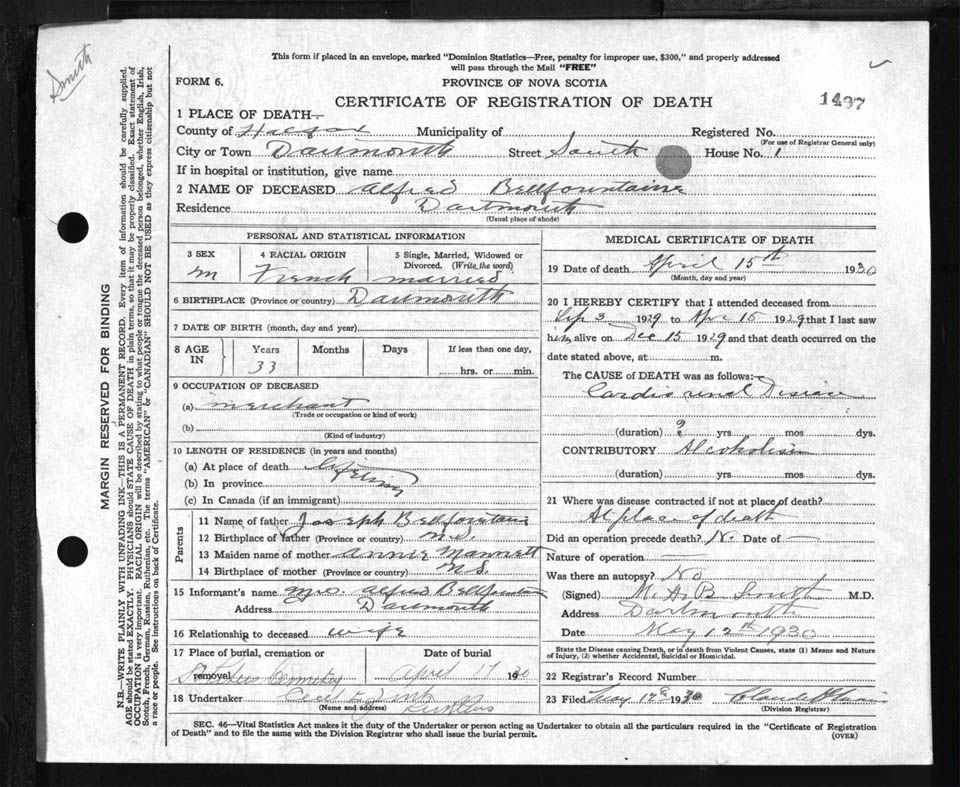 This form if placed in an envelope, marked "Dominion Statistics—Free, penalty for improper use, $300," and properly addressed
will pass through the Mail "FREE"
Smith
FORM 6.
PROVINCE OF NOVA SCOTIA
CERTIFICATE OF REGISTRATION OF DEATH
1437
1 PLACE OF DEATH—
County of Halifax Municipality of Registered No.
(For use of Registrar General only)
City or Town Dartmouth Street South House No. 1
If in hospital or institution, give name
2 NAME OF DECEASED Alfred Bellfountaine
Residence Dartmouth
(Usual place of abode)
MARGIN RESERVED FOR BINDING
N.B.—WRITE PLAINLY WITH UNFADING INK—THIS IS A PERMANENT RECORD. Every item of information should be carefully supplied.
AGE should be stated EXACTLY. PHYSICIANS should STATE CAUSE OF DEATH in plain terms, so that it may be properly classified. Exact statement of
OCCUPATION is very important. RACIAL ORIGIN will be described by stating to what people or tongue the deceased person belonged, whether English, Irish,
Scotch, French, German, Russian, Ruthenian, etc. The terms "AMERICAN" or "CANADIAN" SHOULD NOT BE USED as they express citizenship but not
a race or people. See instructions on back of Certificate.
PERSONAL AND STATISTICAL INFORMATION
3 SEX
m
4 RACIAL ORIGIN
French
5 Single, Married, Widowed or
Divorced. (Write the word)
married
6 BIRTHPLACE (Province or country) Dartmouth
7 DATE OF BIRTH (month, day and year)
8 AGE IN
Years Months Days If less than one day,
33 hrs. or min.
9 OCCUPATION OF DECEASED
(a) merchant
(Trade or occupation or kind of work)
(b)
(Kind of industry)
10 LENGTH OF RESIDENCE (in years and months)
(a) At place of death lifetime
(b) In province
(c) In Canada (if an immigrant)
Parents
11 Name of father Joseph Bellfountaine
12 Birthplace of father (Province or country) N.S.
13 Maiden name of mother Annie Mannett
14 Birthplace of mother (Province or country) N.S.
15 Informant's name Mrs. Alfred Bellfountaine
Address Dartmouth
16 Relationship to deceased wife
17 Place of burial, cremation or removal Date of burial
St Peters Cemetery April 17 1930
18 Undertaker Cecil E
(Name and address)
MEDICAL CERTIFICATE OF DEATH
19 Date of death April 15th 1930
(Month, day and year)
20 I HEREBY CERTIFY that I attended deceased from
Sep 3 1929 to Apr 15 1929 that I last saw
him alive on Dec 15 1929 and that death occurred on the
date stated above, at m.
The CAUSE of DEATH was as follows:—
Cardio renal Disease
(duration) ? yrs mos dys.
CONTRIBUTORY Alcoholism
(duration) yrs mos dys.
21 Where was disease contracted if not at place of death?
At place of death
Did an operation precede death? No Date of —
Nature of operation —
Was there an autopsy? No
(Signed) M. A. B. Smith M.D.
Address Dartmouth
Date May 12th 1930
State the Disease causing Death, or in death from Violent Causes, state (1) Means and Nature
of Injury, (2) whether Accidental, Suicidal or Homicidal.
22 Registrar's Record Number
23 Filed May 12th 1930
(Division Registrar)
SEC. 46—Vital Statistics Act makes it the duty of the Undertaker or person acting as Undertaker to obtain all the particulars required in the "Certificate of Registration
of Death" and to file the same with the Division Registrar who shall issue the burial permit.
(OVER)